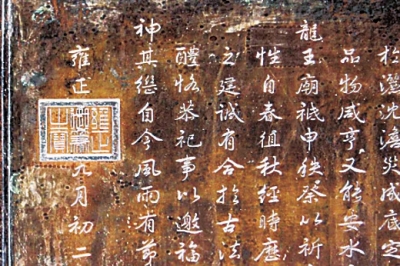 於灑沈澹災咸底定
品物咸亨又能安水
龍王廟祗申秩祭以祈
性自春徂秋經時歷
之建誠有合於古法
醴恪恭祀事以邀福
神其自今風雨有節
雍正
雍正御筆之寶
九月初二